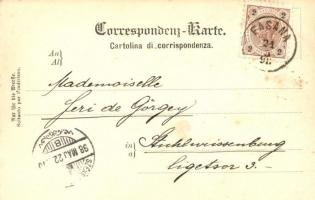 Correspondenz-Karte.
Cartolina di corrispondenza.
FASANA
21
98
2 2
An)
Al)
Mademoiselle
Jeri de Görgey
in)
a)
Stuhlweissenburg
ligetsor 3.—
Nur für die Adresse.
98 MAJ 22